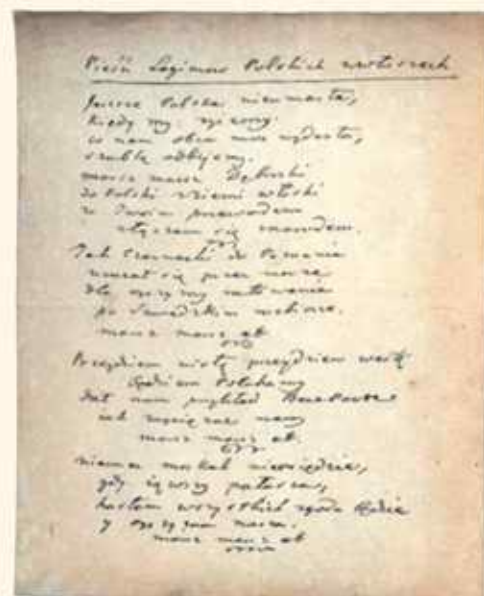 Pieśń Legionów Polskich we włoszech
Jeszcze Polska nieumarła,
kiedy my żyjemy
co nam obca moc wydarła,
szablą odbijemy.
marsz marsz Dąbroski
do Polski z ziemi włoski
za Twoim przewodem
złączem się z narodem.
Jak Czarnecki do Poznania
wracał się przez morze
dla oyczyzny ratowania
po Szwedzkim
marsz marsz et
Przejdziem wisłę przejdziem wartę
będziem Polakamy
dał nam przykład Bonaparte
jak zwyciężać mamy
marsz marsz et
niemiec moskal nieosiędzie,
gdy jąwszy pałasza,
hasłem wszystkich zgoda będzie
y oyczyzna nasza.
marsz marsz et